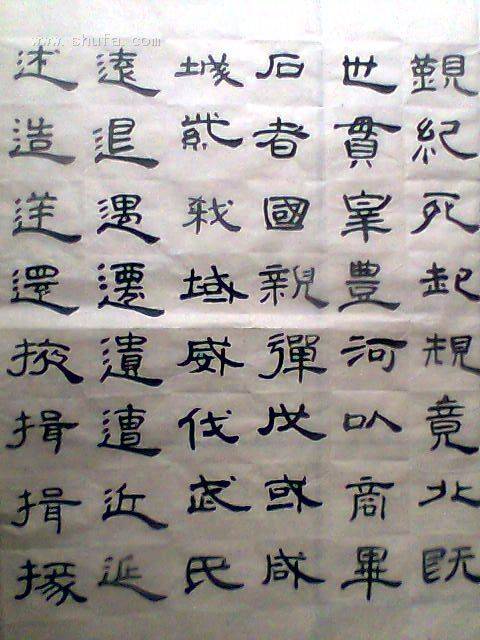 www.shufa.com
紀死起規竟北既
世貫豊河以商畢
石者國親彈或咸
城域威伐武民
遠退遇遷遺遭近延
述造還掖揖揖掾